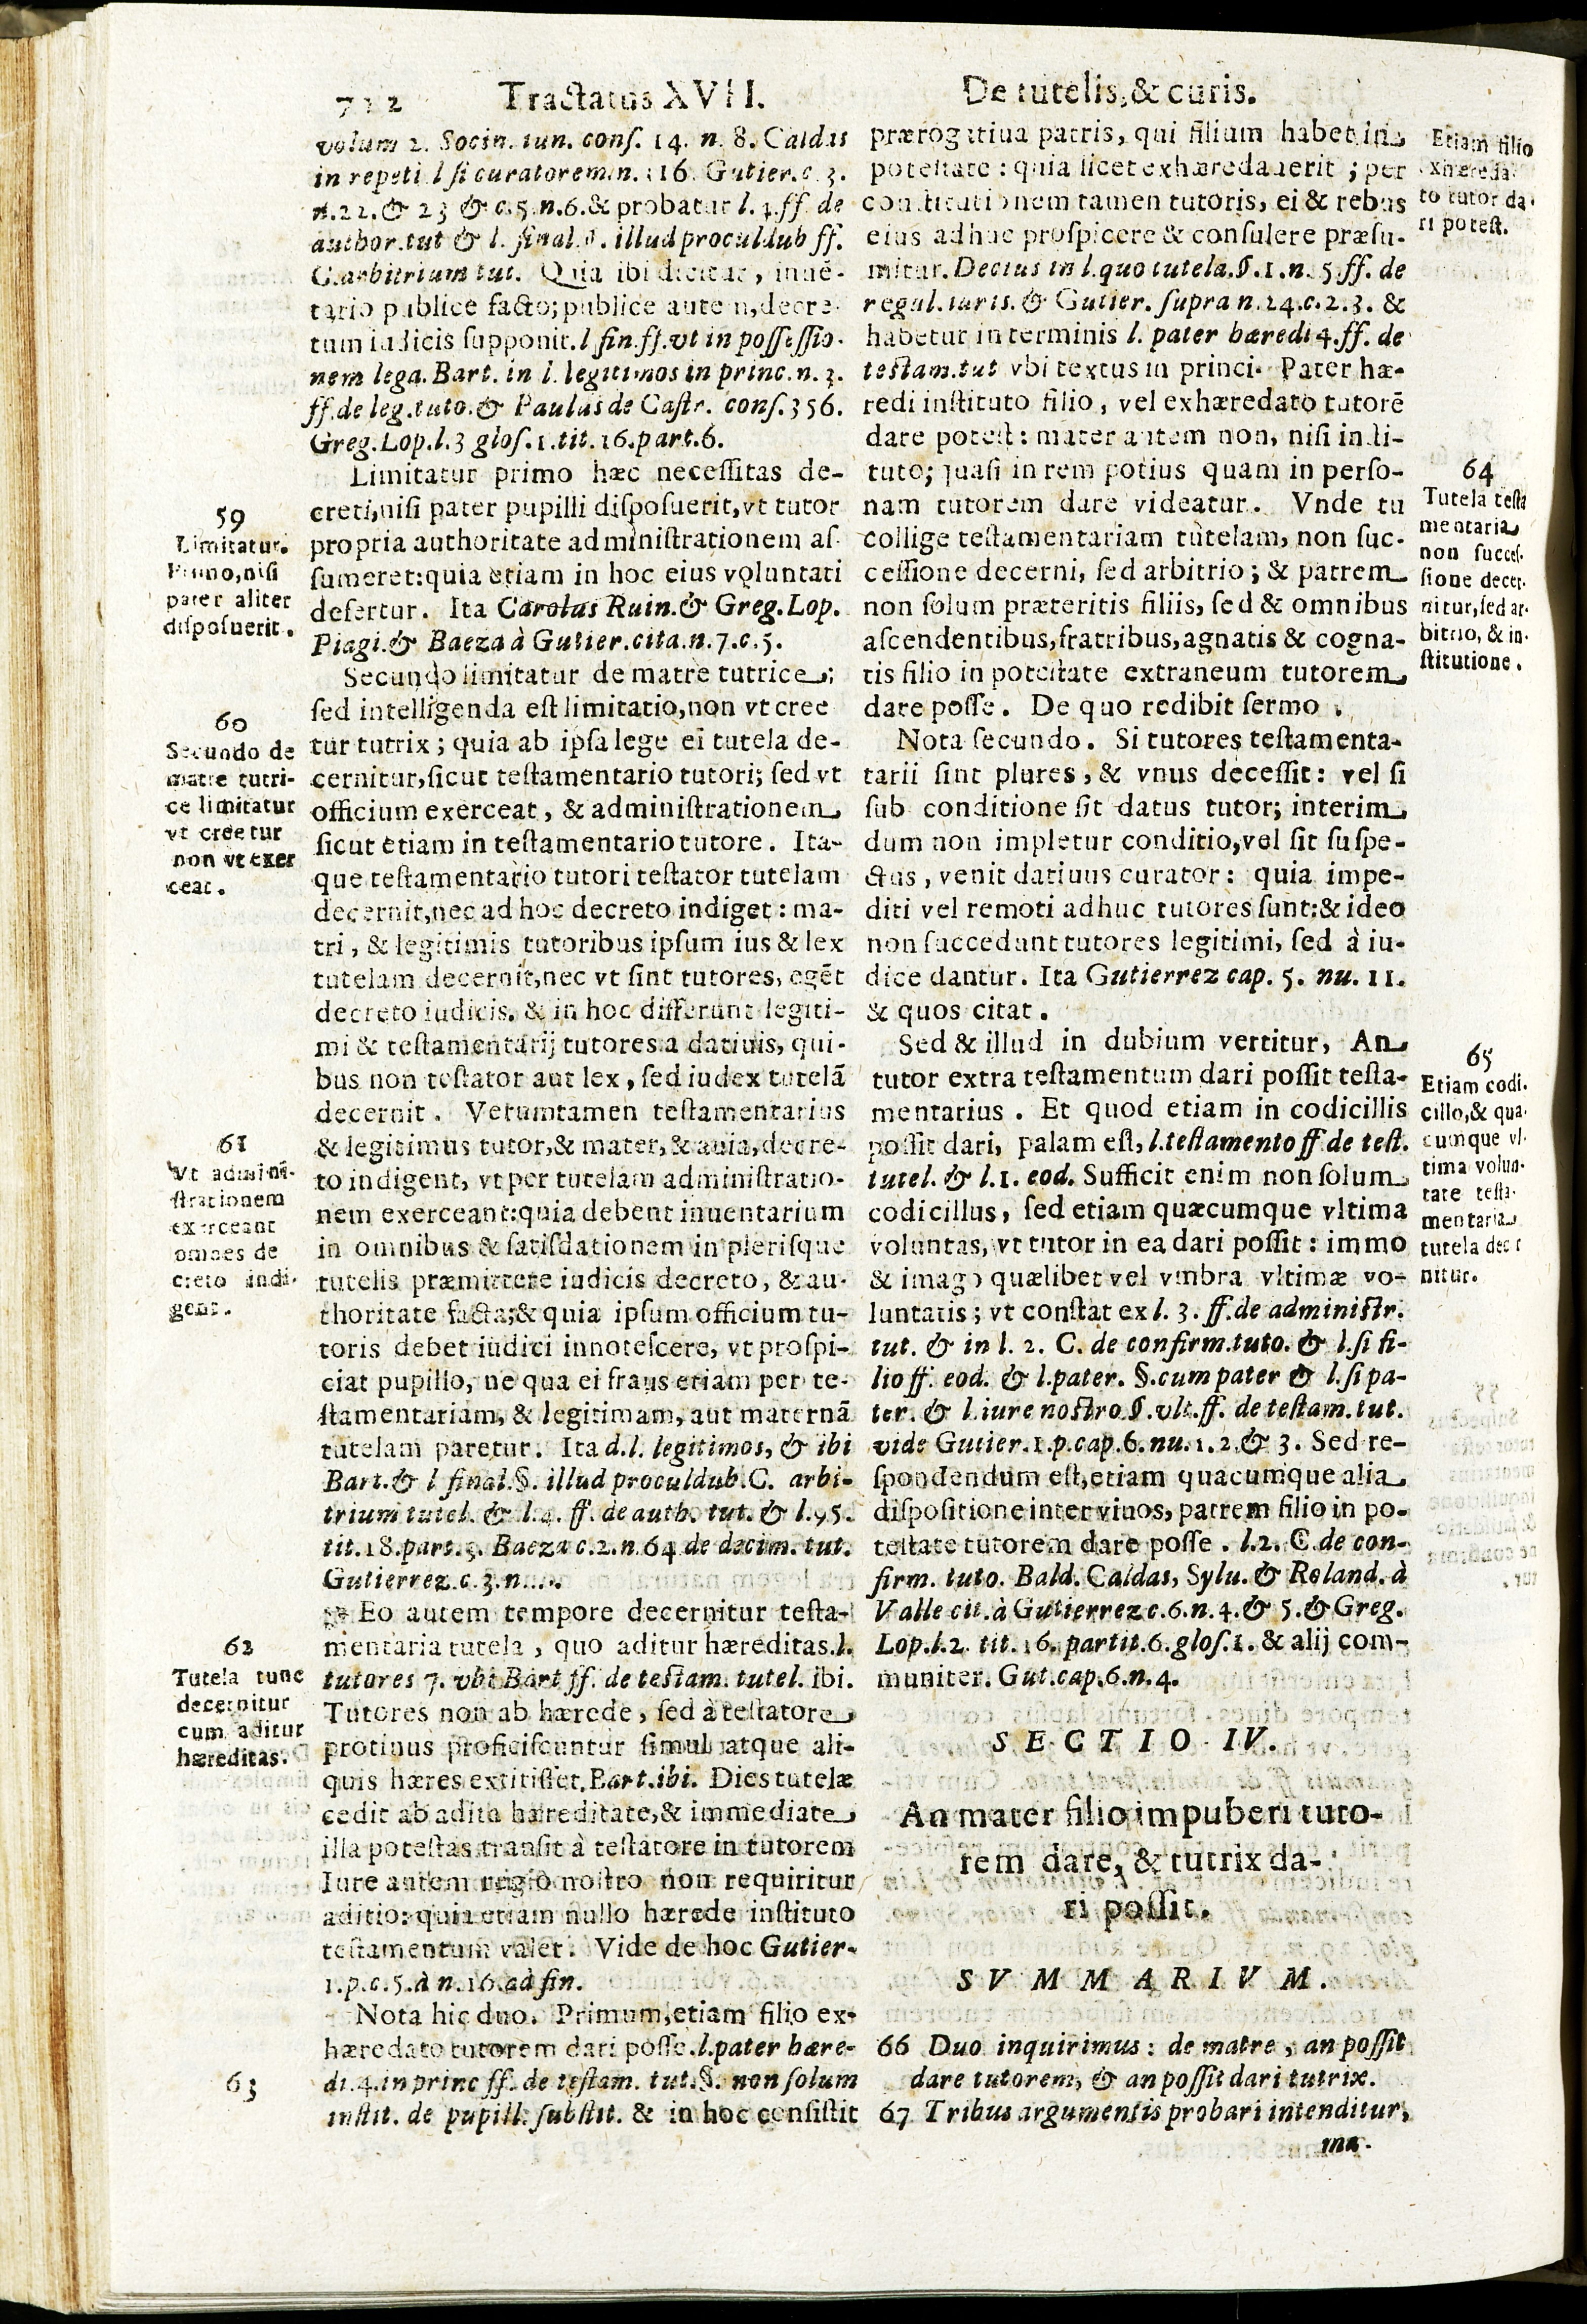 712 Tractatus XVII. De tutelis, & curis.
volum 2. Socin. iun. conſ. 14. n. 8. Caldas
in repeti l ſi curatorem.n. 116. Gutier.c. 3.
n.22. & 23 & c.5.n.6.& probatur l. 4.ff. de
author.tut & l. final.§. illud proculdub ff.
C.arbitrium tut. Quia ibi dicitur, inuẽ-
tario publice facto; publice autem, decre-
tum iudicis ſupponit. l fin.ff.vt in poſſeſſio-
nem lega. Bart. in l. legitimos in princ. n. 3.
ff.de leg.tuto.& Paulus de Caſtr. conſ.356.
Greg.Lop.l.3 gloſ.1.tit.16.part.6.
Limitatur primo hæc neceſſitas de-
creti, niſi pater pupilli diſpoſuerit, vt tutor
propria authoritate adminiſtrationem aſ-
ſumeret: quia etiam in hoc eius voluntati
defertur. Ita Carolus Ruin.& Greg.Lop.
Piagi.& Baeza à Gutier.cita.n.7.c.5.
Secundo limitatur de matre tutrice;
ſed intelligenda eſt limitatio, non vt cree
tur tutrix; quia ab ipſa lege ei tutela de-
cernitur, ſicut teſtamentario tutori; ſed vt
officium exerceat, & adminiſtrationem
ſicut etiam in teſtamentario tutore. Ita-
que teſtamentario tutori teſtator tutelam
decernit, nec ad hoc decreto indiget: ma-
tri, & legitimis tutoribus ipſum ius & lex
tutelam decernit, nec vt ſint tutores, egẽt
decreto iudicis. & in hoc differunt legiti-
mi & teſtamentarij tutores a datiuis, qui-
bus non teſtator aut lex, ſed iudex tutelã
decernit. Verumtamen teſtamentarius
& legitimus tutor, & mater, & auia, decre-
to indigent, vt per tutelam adminiſtratio-
nem exerceant: quia debent inuentarium
in omnibus & ſatiſdationem in pleriſque
tutelis præmittere iudicis decreto, & au-
thoritate facta; & quia ipſum officium tu-
toris debet iudici innoteſcere, vt proſpi-
ciat pupillo, ne qua ei fraus etiam per te-
ſtamentariam, & legitimam, aut maternã
tutelam paretur. Ita d.l. legitimos, & ibi
Bart.& l final.§. illud proculdub.C. arbi-
trium tutel. & l.4. ff. de auth. tut. & l.95.
tit.18.part.3. Baeza c.2.n.64 de decim. tut.
Gutierrez.c.3.n....
Eo autem tempore decernitur teſta-
mentaria tutela, quo aditur hæreditas. l.
tutores 7. vbi Bart ff. de teſtam. tutel. ibi.
Tutores non ab hærede, ſed à teſtatore
protinus proficiſcuntur ſimul atque ali-
quis hæres extitiſſet. Bart.ibi. Dies tutelæ
cedit ab adita hæreditate, & immediate
illa poteſtas tranſit à teſtatore in tutorem
Iure autem regio noſtro non requiritur
aditio: quia etiam nullo hærede inſtituto
teſtamentum valet. Vide de hoc Gutier-
1.p.c.5.à n.16.ad fin.
Nota hic duo. Primum, etiam filio ex-
hæredato tutorem dari poſſe. l.pater hære-
di.4.in princ ff. de teſtam. tut.§. non ſolum
inſtit. de pupill. ſubſtit. & in hoc conſiſtit
59
Limitatur.
Primo, niſi
pater aliter
diſpoſuerit.
60
Secundo de
matre tutri-
ce limitatur
vt creetur
non vt exer
ceat.
61
Vt admini-
ſtrationem
exerceant
omnes de
creto indi-
gent.
62
Tutela tunc
decernitur
cum aditur
hæreditas.
63
prærogatiua patris, qui filium habet in
poteſtate: quia licet exhæredauerit; per
conſtitutionem tamen tutoris, ei & rebus
eius adhuc proſpicere & conſulere præſu-
mitur. Decius in l.quo tutela.§.1.n.5.ff. de
regul.iuris. & Gutier. ſupra n.24.c.2.3. &
habetur in terminis l. pater hæredi 4.ff. de
teſtam.tut vbi textus in princi. Pater hæ-
redi inſtituto filio, vel exhæredato tutorẽ
dare poteſt: mater autem non, niſi inſti-
tuto; quaſi in rem potius quam in perſo-
nam tutorem dare videatur. Vnde tu
collige teſtamentariam tutelam, non ſuc-
ceſſione decerni, ſed arbitrio; & patrem
non ſolum præteritis filiis, ſed & omnibus
aſcendentibus, fratribus, agnatis & cogna-
tis filio in poteſtate extraneum tutorem
dare poſſe. De quo redibit ſermo.
Nota ſecundo. Si tutores teſtamenta-
tarii ſint plures, & vnus deceſſit: vel ſi
ſub conditione ſit datus tutor; interim
dum non impletur conditio, vel ſit ſuſpe-
ctus, venit datiuus curator: quia impe-
diti vel remoti adhuc tutores ſunt: & ideo
non ſuccedunt tutores legitimi, ſed à iu-
dice dantur. Ita Gutierrez cap. 5. nu. 11.
& quos citat.
Sed & illud in dubium vertitur, An
tutor extra teſtamentum dari poſſit teſta-
mentarius. Et quod etiam in codicillis
poſſit dari, palam eſt, l.teſtamento ff de teſt.
tutel. & l.1. eod. Sufficit enim non ſolum
codicillus, ſed etiam quæcumque vltima
voluntas, vt tutor in ea dari poſſit: immo
& imago quælibet vel vmbra vltimæ vo-
luntatis; vt conſtat ex l. 3. ff.de adminiſtr.
tut. & in l. 2. C. de confirm.tuto. & l.ſi fi-
lio ff. eod. & l.pater. §.cum pater & l.ſi pa-
ter. & l.iure noſtro §.vlt.ff. de teſtam.tut.
vide Gutier.1.p.cap.6.nu.1.2.& 3. Sed re-
ſpondendum eſt, etiam quacumque alia
diſpoſitione inter viuos, patrem filio in po-
teſtate tutorem dare poſſe. l.2. C.de con-
firm. tuto. Bald. Caldas, Sylu. & Roland. à
Valle cit.à Gutierrez c.6.n.4.& 5.& Greg.
Lop.l.2. tit.16.partit.6.gloſ.1. & alij com-
muniter. Gut.cap.6.n.4.
SECTIO IV.
An mater filio impuberi tuto-
rem dare, & tutrix da-
ri poſſit.
SVMMARIVM.
66 Duo inquirimus: de matre, an poſſit
dare tutorem, & an poſſit dari tutrix.
67 Tribus argumentis probari intenditur,
ma-
Etiam filio
exhæreda-
to tutor da-
ri poteſt.
64
Tutela teſta
mentaria
non ſucceſ-
ſione decer-
nitur, ſed ar-
bitrio, & in-
ſtitutione.
65
Etiam codi-
cillo, & qua-
cumque vl-
tima volun-
tate teſta-
mentaria
tutela decer
nitur.